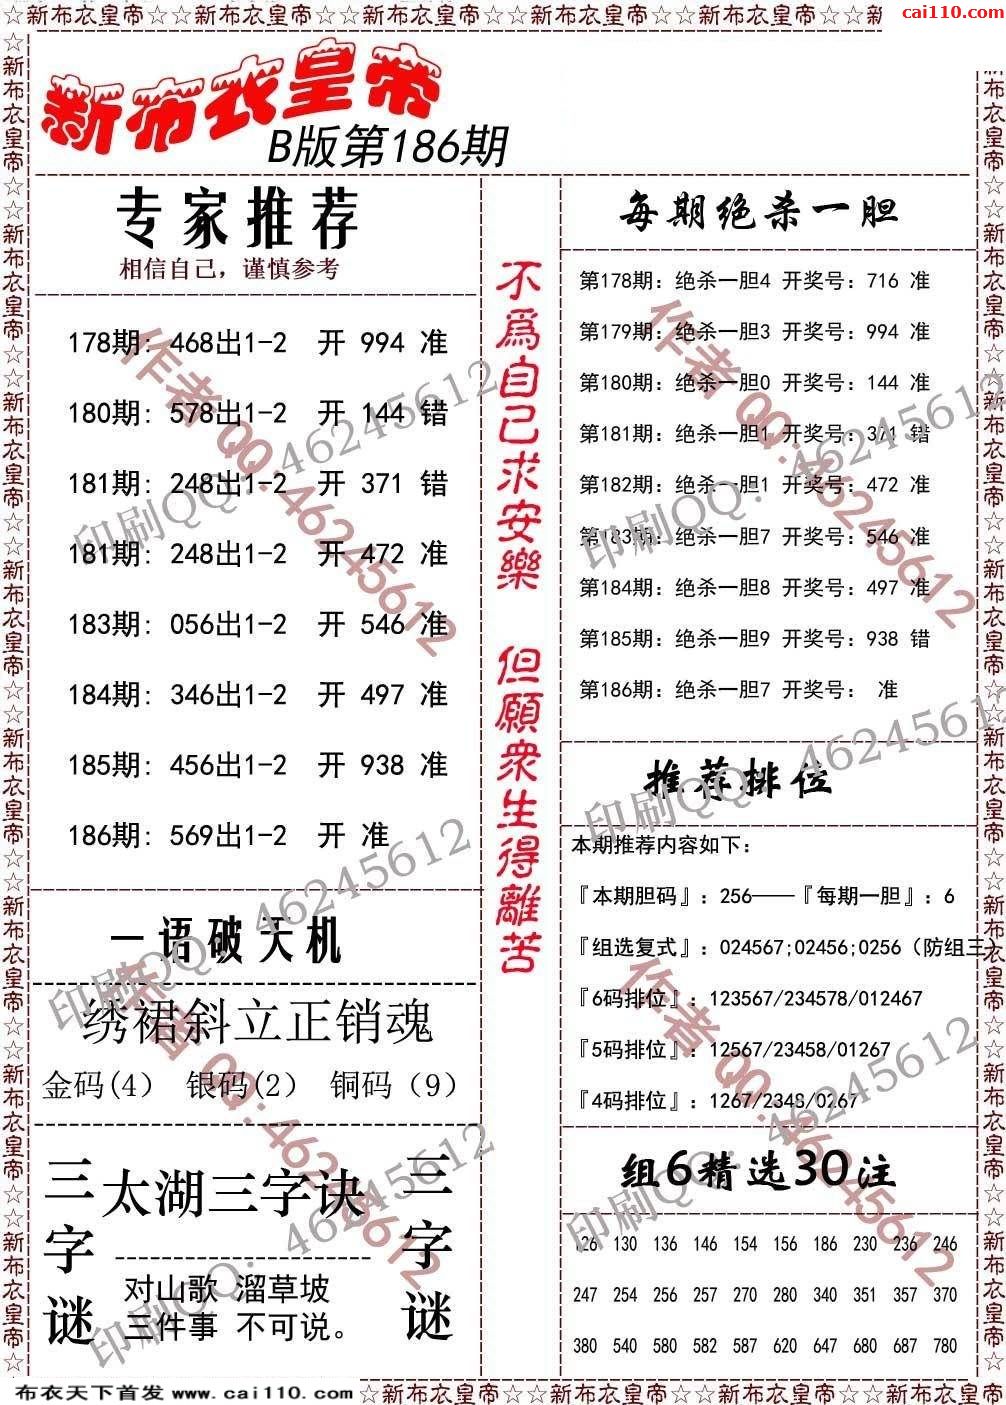 ☆新布衣皇帝☆☆新布衣皇帝☆☆新布衣皇帝☆☆新布衣皇帝☆☆新布衣皇帝☆☆新
cai110.com
新布衣皇帝
B版第186期
专家推荐
相信自己，谨慎参考
178期: 468出1-2 开 994 准
180期: 578出1-2 开 144 错
181期: 248出1-2 开 371 错
181期: 248出1-2 开 472 准
183期: 056出1-2 开 546 准
184期: 346出1-2 开 497 准
185期: 456出1-2 开 938 准
186期: 569出1-2 开 准
一语破天机
绣裙斜立正销魂
金码(4) 银码(2) 铜码（9）
三字谜
太湖三字诀
对山歌 溜草坡
三件事 不可说。
三字谜
不爲自己求安樂 但願衆生得離苦
每期绝杀一胆
第178期: 绝杀一胆4 开奖号: 716 准
第179期: 绝杀一胆3 开奖号: 994 准
第180期: 绝杀一胆0 开奖号: 144 准
第181期: 绝杀一胆1 开奖号: 371 错
第182期: 绝杀一胆1 开奖号: 472 准
第183期: 绝杀一胆7 开奖号: 546 准
第184期: 绝杀一胆8 开奖号: 497 准
第185期: 绝杀一胆9 开奖号: 938 错
第186期: 绝杀一胆7 开奖号: 准
推荐排位
本期推荐内容如下:
『本期胆码』: 256——『每期一胆』: 6
『组选复式』: 024567;02456;0256（防组三）
『6码排位』: 123567/234578/012467
『5码排位』: 12567/23458/01267
『4码排位』: 1267/2348/0267
组6精选30注
126 130 136 146 154 156 186 230 236 246
247 254 256 257 270 280 340 351 357 370
380 540 580 582 587 620 647 680 687 780
作者QQ:46245612
印刷QQ: 46245612
作者QQ:46245612
印刷QQ: 46245612
印刷QQ: 46245612
印刷QQ: 46245612
作者QQ:46245612
印刷QQ: 46245612
作者QQ:46245612
印刷QQ: 46245612
布衣天下首发 www.cai110.com
☆新布衣皇帝☆☆新布衣皇帝☆☆新布衣皇帝☆☆新布衣皇帝☆